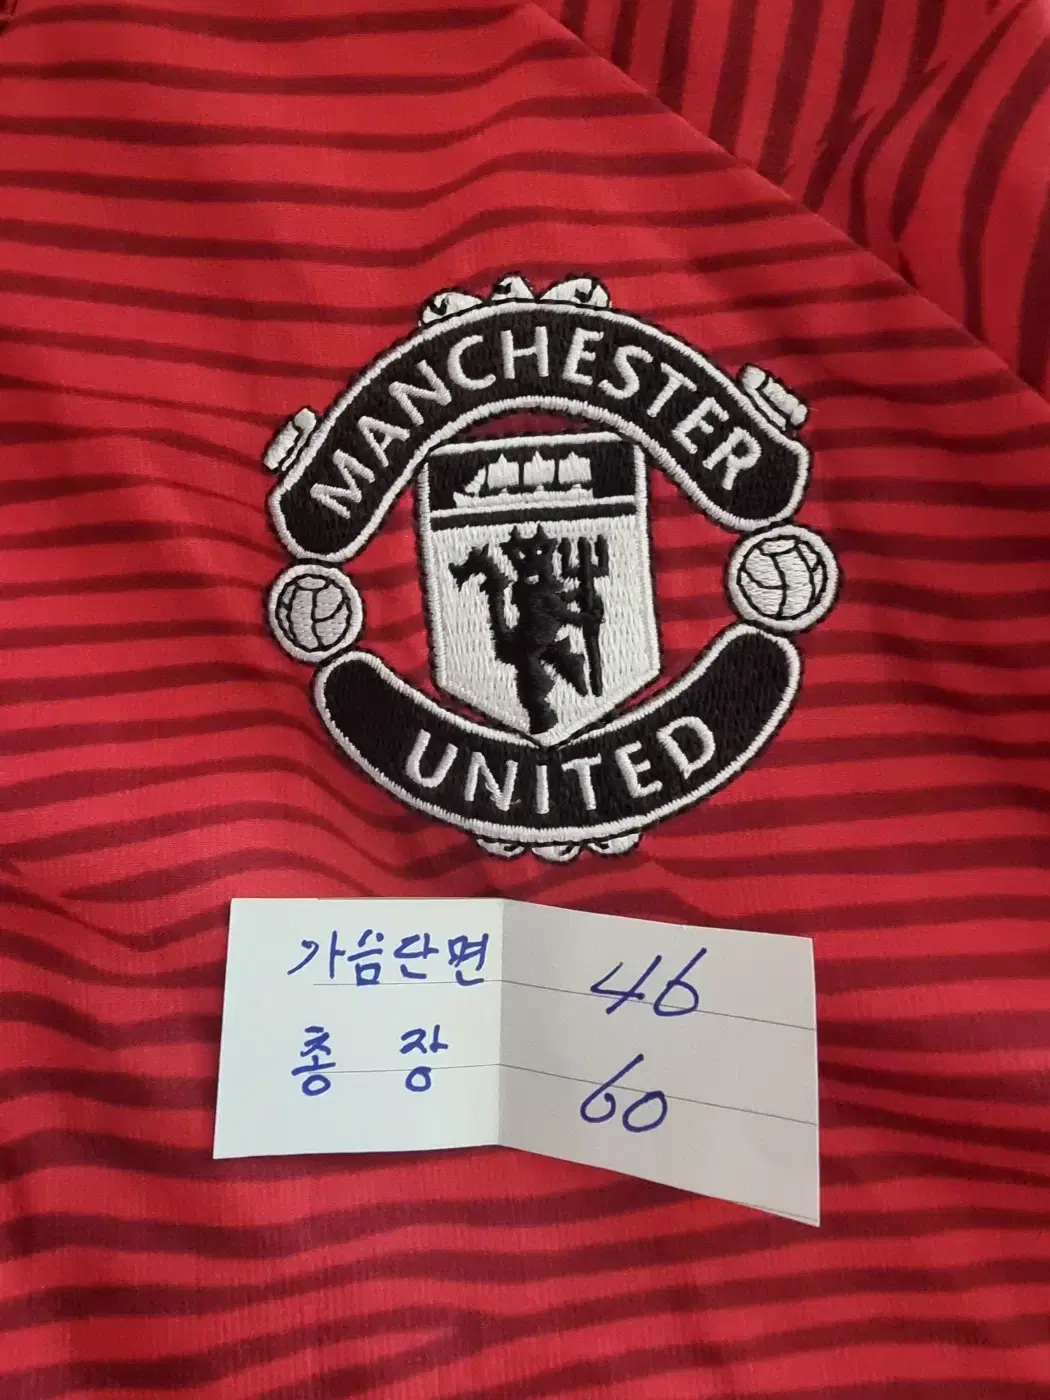 MANCHESTER
UNITED
가슴단면 46
총 장 60